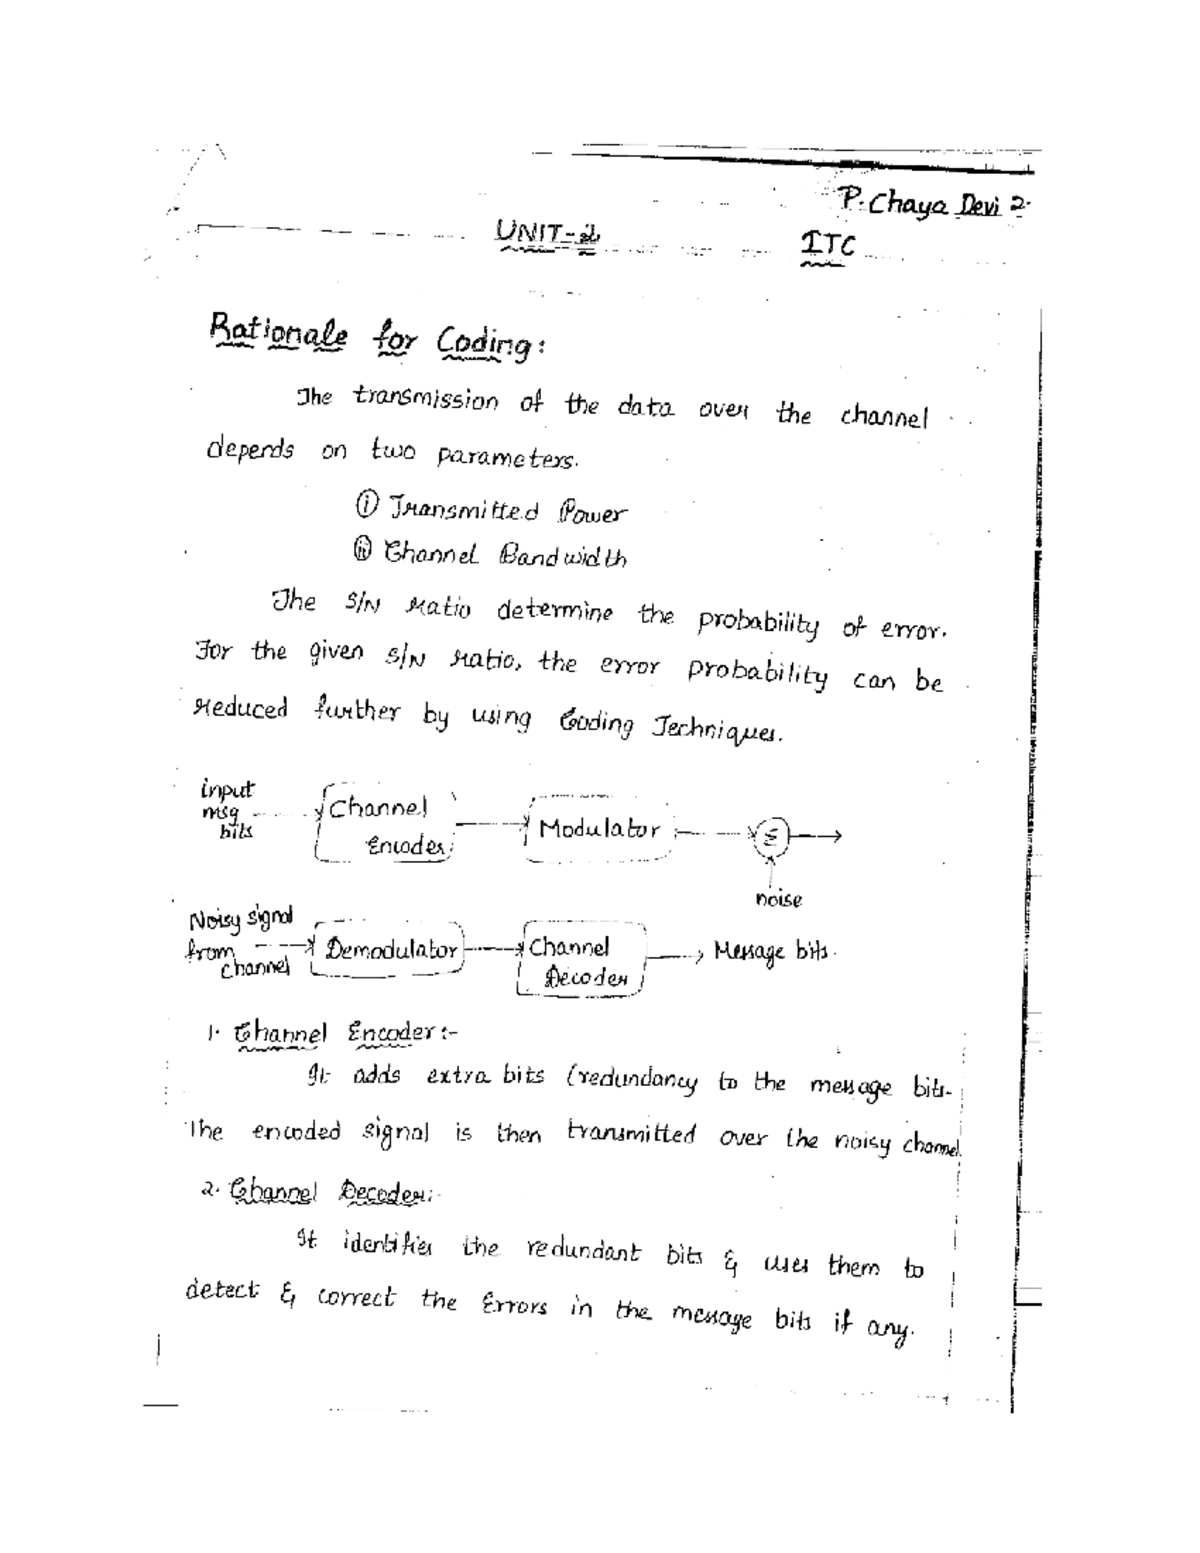 P. Chaya Devi 2.
UNIT-2
ITC
Rationale for Coding:
The transmission of the data over the channel
depends on two parameters.
(i) Transmitted Power
(ii) Channel Bandwidth
The S/N ratio determine the probability of error.
For the given S/N ratio, the error probability can be
reduced further by using Coding Techniques.
input
msg
bits
Channel
Encoder
Modulator
Σ
noise
Noisy signal
from
channel
Demodulator
Channel
Decoder
Message bits.
1. Channel Encoder:-
It adds extra bits (redundancy to the message bits.
The encoded signal is then transmitted over the noisy channel
2. Channel Decoder:-
It identifies the redundant bits & uses them to
detect & correct the Errors in the message bits if any.